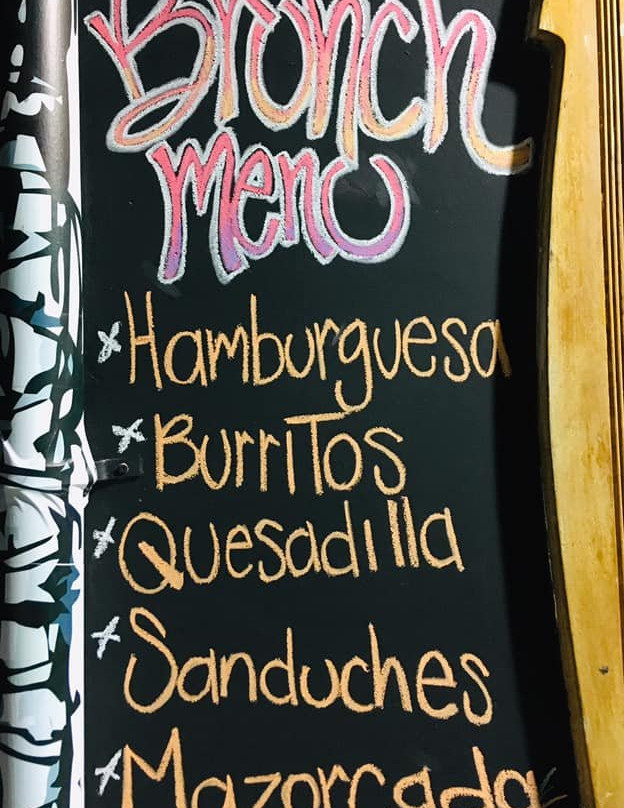 Bronch
menu
x Hamburguesa
x Burritos
x Quesadilla
x Sanduches
x Mazorcada